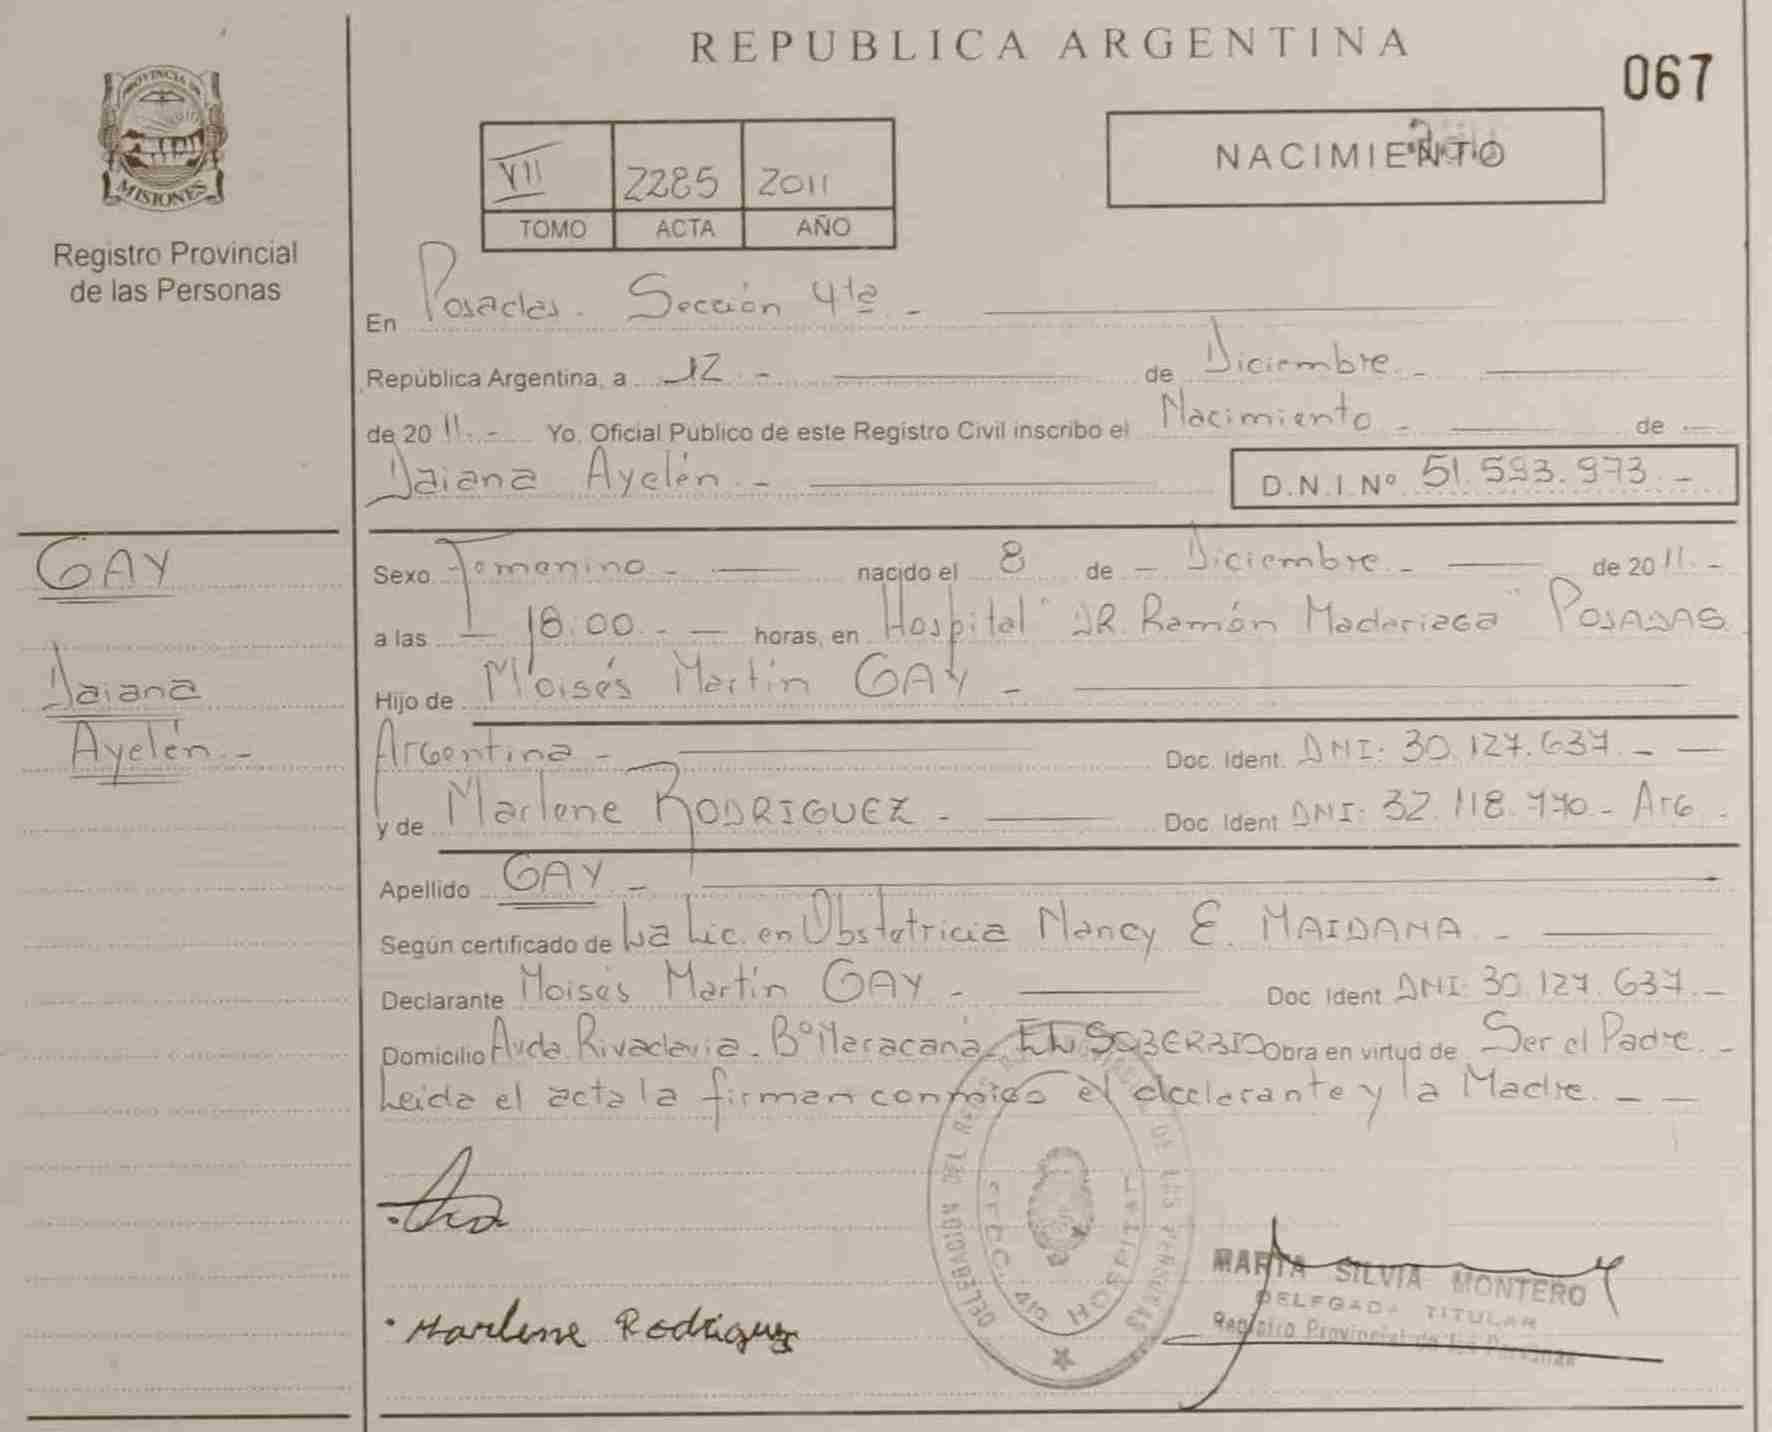 REPUBLICA ARGENTINA
067
PROVINCIA DE
MISIONES
Registro Provincial
de las Personas
VII 2285 2011
TOMO ACTA AÑO
NACIMIENTO
En Posadas. Sección 4ta. -
República Argentina, a 12. - de Diciembre. -
de 2011. - Yo, Oficial Público de este Registro Civil inscribo el Nacimiento - de -
Daiana Ayelén. - D.N.I. Nº 51.593.973. -
GAY
Daiana
Ayelén. -
Sexo Femenino - nacido el 8 de - Diciembre. - de 2011. -
a las - 18:00. - - horas, en Hospital "DR. Ramón Madariaga" POSADAS
Hijo de Moisés Martín GAY -
Argentina - Doc. Ident. DNI: 30.127.637. - -
y de Marlene RODRIGUEZ - Doc. Ident DNI: 32.118.770 - Arg -
Apellido GAY -
Según certificado de La Lic. en Obstetricia Nancy E. MAIDANA. -
Declarante Moisés Martín GAY - Doc Ident DNI: 30.127.637. -
Domicilio Avda. Rivadavia. Bº Maracaná. EL SOBERBIO Obra en virtud de Ser el Padre. -
Leida el acta la firman conmigo el declarante y la Madre. - -
DELEGACION DEL REGISTRO DE LAS PERSONAS
HOSPITAL
Marlene Rodriguez
MARTA SILVIA MONTERO
DELEGADA TITULAR
Registro Provincial de las Personas